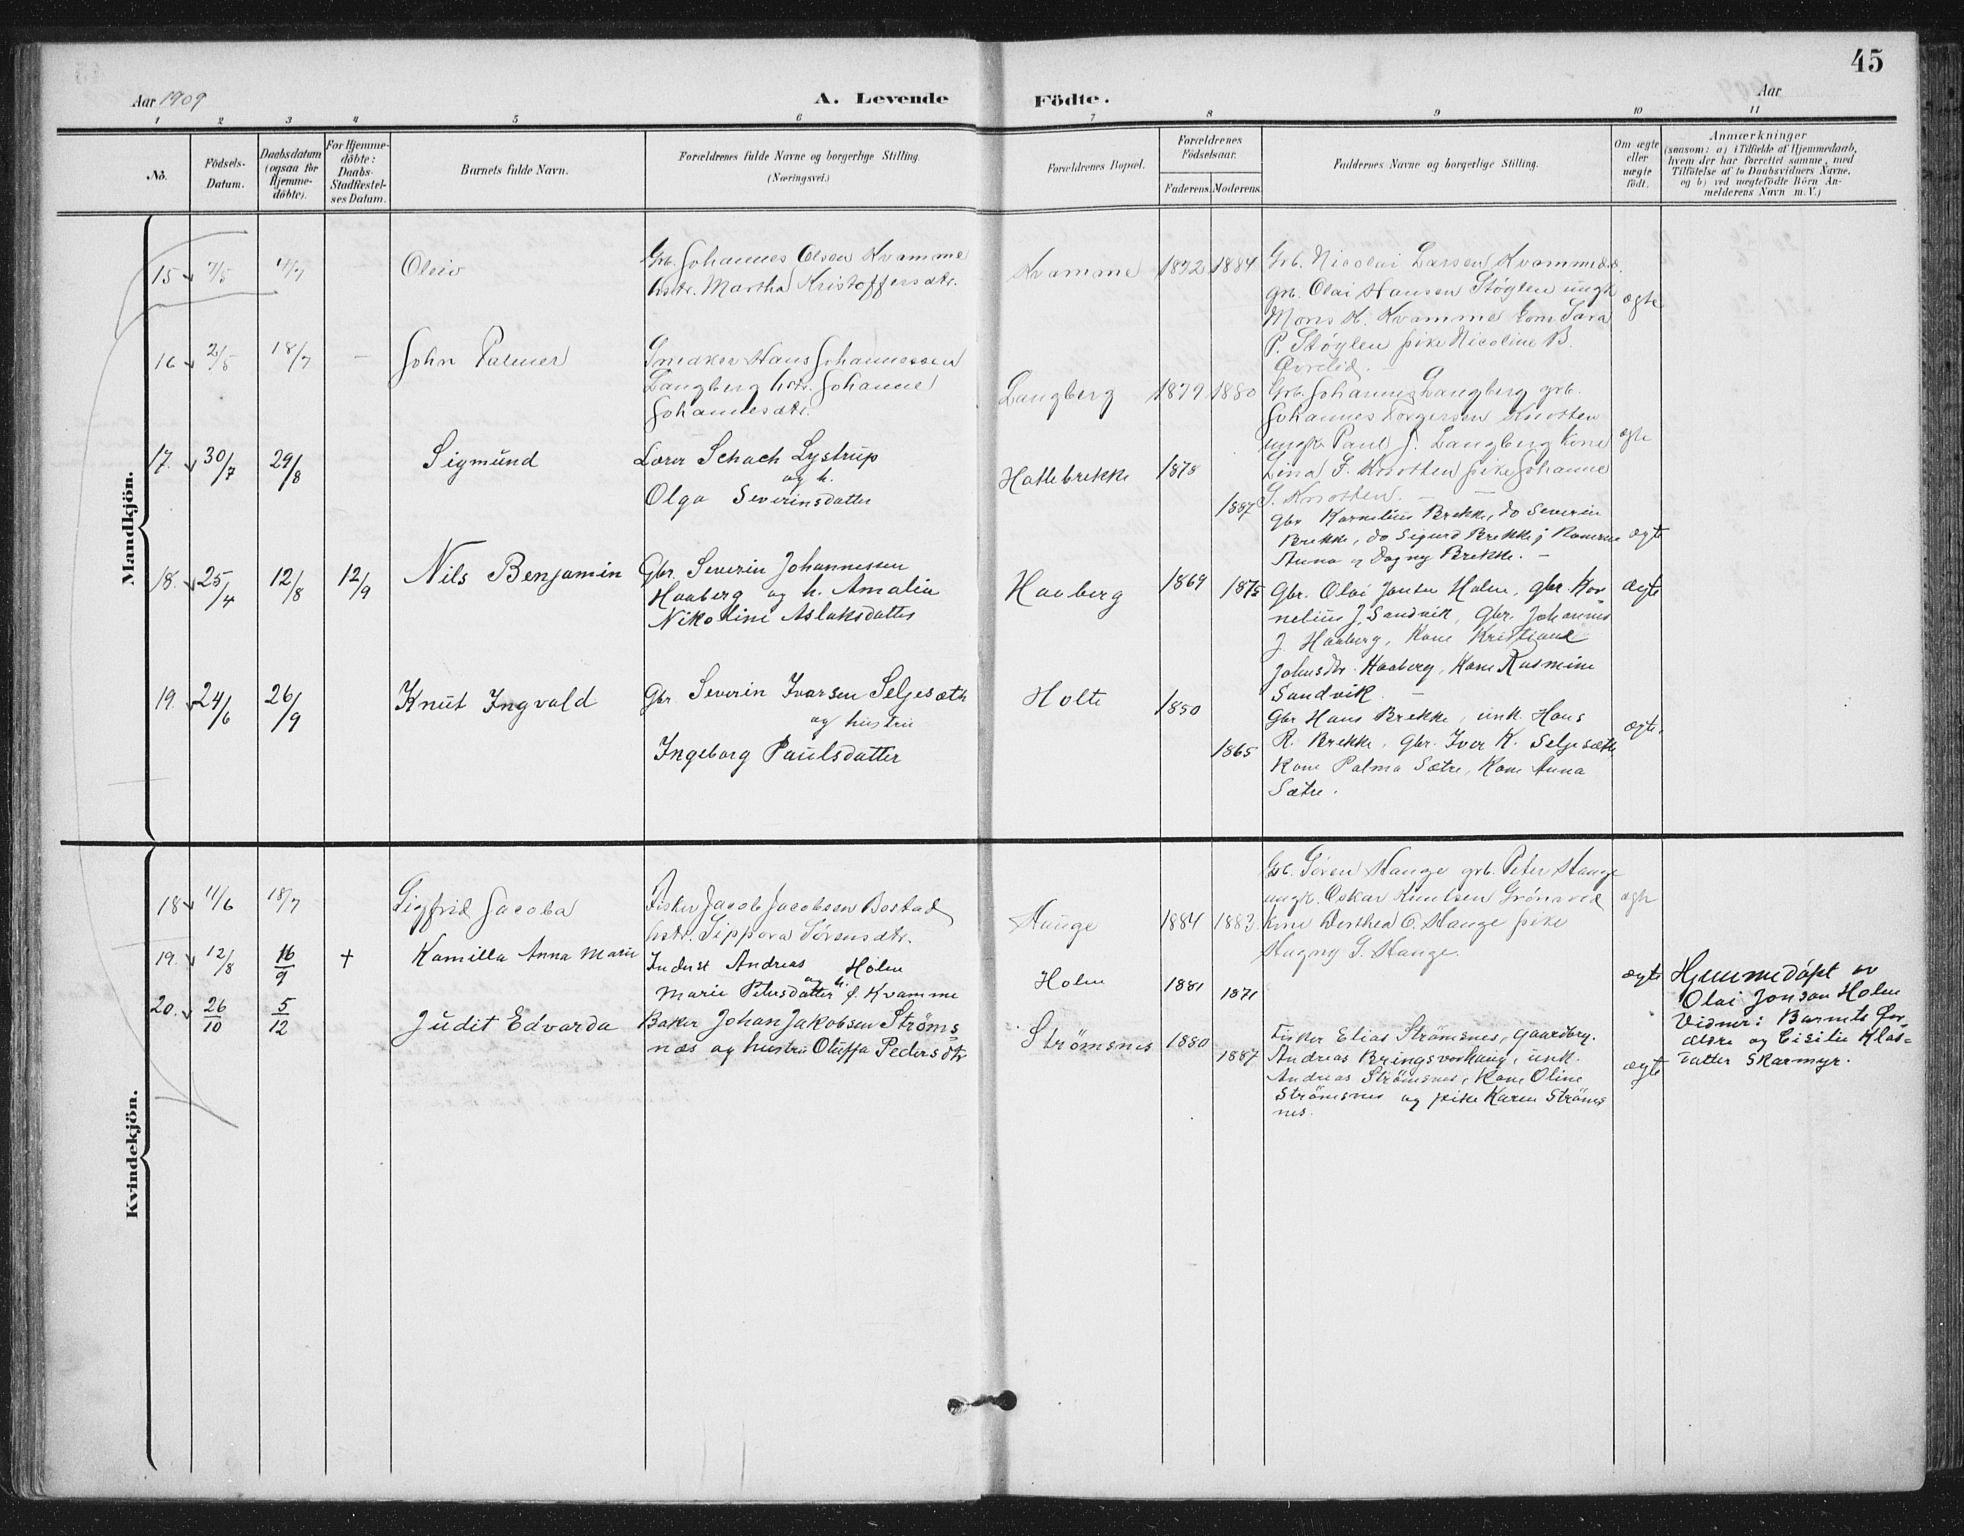 45
Aar 1909
A. Levende Födte.
Aar
1 2 3 4 5 6 7 8 9 10 11
No.
Födsels-Datum.
Daabsdatum (ogsaa for Hjemmedöbte).
For Hjemmedöbte: Daabs-Stadfæstelses Datum.
Barnets fulde Navn.
Forældrenes fulde Navne og borgerlige Stilling.
(Næringsvei.)
Forældrenes Bopæl.
Forældrenes Födselsaar.
Faderens. Moderens.
Faddernes Navne og borgerlige Stilling.
Om ægte eller uægte födt.
Anmærkninger
(saasom: a) i Tilfælde af Hjemmedaab,
hvem der har forrettet samme, med
Tilföielse af to Daabsvidners Navne,
og b) ved uægtefödte Börn An-
melderens Navn m. V.)
Mandkjön.
15 Oleiv
Grb. Johannes Olsen Kvamme
hstr. Martha Kristoffersdtr.
Kvamme 1872 1884
Grb. Nicolai Larsen Kvamme
grb. Olai Hansen Støylen ungk
Mons K. Kvamme kone Sara
P. Støylen pike Nicoline B.
Øvrelid.
ægte
16 2/5 18/7 - John Palmer
Hans Johannessen
Langberg hstr. Johanne
Johannesdtr.
Langberg 1879 1880
Grb. Johannes Langberg grb.
Johannes Torgersen Knotten
ungk. Paul J. Langberg kone
Lina J. Knotten pike Johanne
J. Knotten. -
ægte
17. 30/7 29/8 Sigmund
Lærer Schach Lystrup
og h.
Olga Severinsdatter
Hatlebrekke 1878 1887
Gbr Kornelius Brekke, do Severin
Brekke, do Sigurd Brekke; Konerne
Anna og Dagny Brekke. -
ægte
18. 25/4 12/8 12/9 Nils Benjamin
Gbr. Severin Johannessen
Haaberg og h. Amalia
Nikoline Aslaksdatter
Haaberg 1869 1875
Gbr. Olai Jonsen Holm, gbr. Kor-
nelius J. Sandvik, Gbr. Johannes
J Haaberg, Kone Kristiane
Johnsdtr. Haaberg, Kone Rasmine
Sandvik. -
ægte
19. 24/6 26/9 Knut Ingvald
Gbr. Severin Ivarsen Seljesæth
og hustru
Ingeborg Paulsdatter
Holte 1850 1865
Gbr Hans Brekke, unk. Hans
R. Brekke, Gbr. Iver K. Seljesæth
Kone Palma Sætre, Kone Anna
Sætre.
ægte.
Kvindekjön.
18 11/6 18/7 Sigfrid Jacoba
Fisker Jacob Jacobsen Bostad
hstr. Sippora Sørensdtr.
Hauge 1884 1883
Grb. Søren Hauge grb. Peter Hauge
ungk. Oskar Knutsen Grønevid
kone Dorthea O. Hauge pike
Magny S. Hauge.
ægte
19. 12/8 16/9 + Kamilla Anna Marie
Inderst Andreas Holm
og h.
Marie Petersdatter f. Kvamme
Holm 1881 1871
ægte
Hjemmedöpt av
Olai Jonsen Holm
Vidner: Barnets for-
ældre og Cisilie Klas-
datter Skarmyr.
20. 26/10 5/12 Judit Edvarda
Baker Johan Jakobsen Ströms-
næs og hustru Oluffa Pedersdtr
Strömsnes 1880 1887
Fisker Elias Strömsnes, Gaardbrg.
Andreas Bringsvorhaug, unk.
Andreas Strömsnes, Kone Oline
Strömsnes og pike Karen Ströms
nes.
ægte